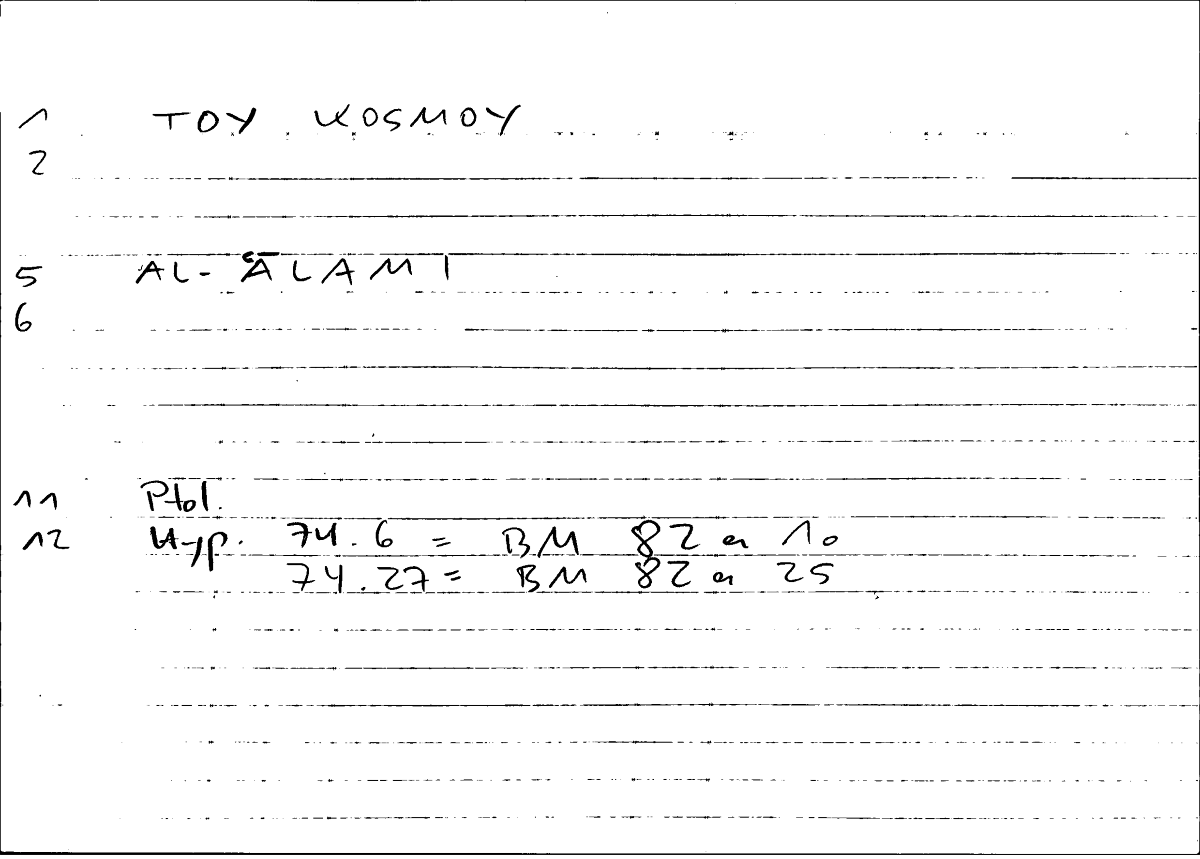 1 TOY KOSMOY
2
5 AL-ʿĀLAMI
6
11 Ptol.
12 Hyp. 74.6 = BM 82 a 10
74.27 = BM 82 a 25